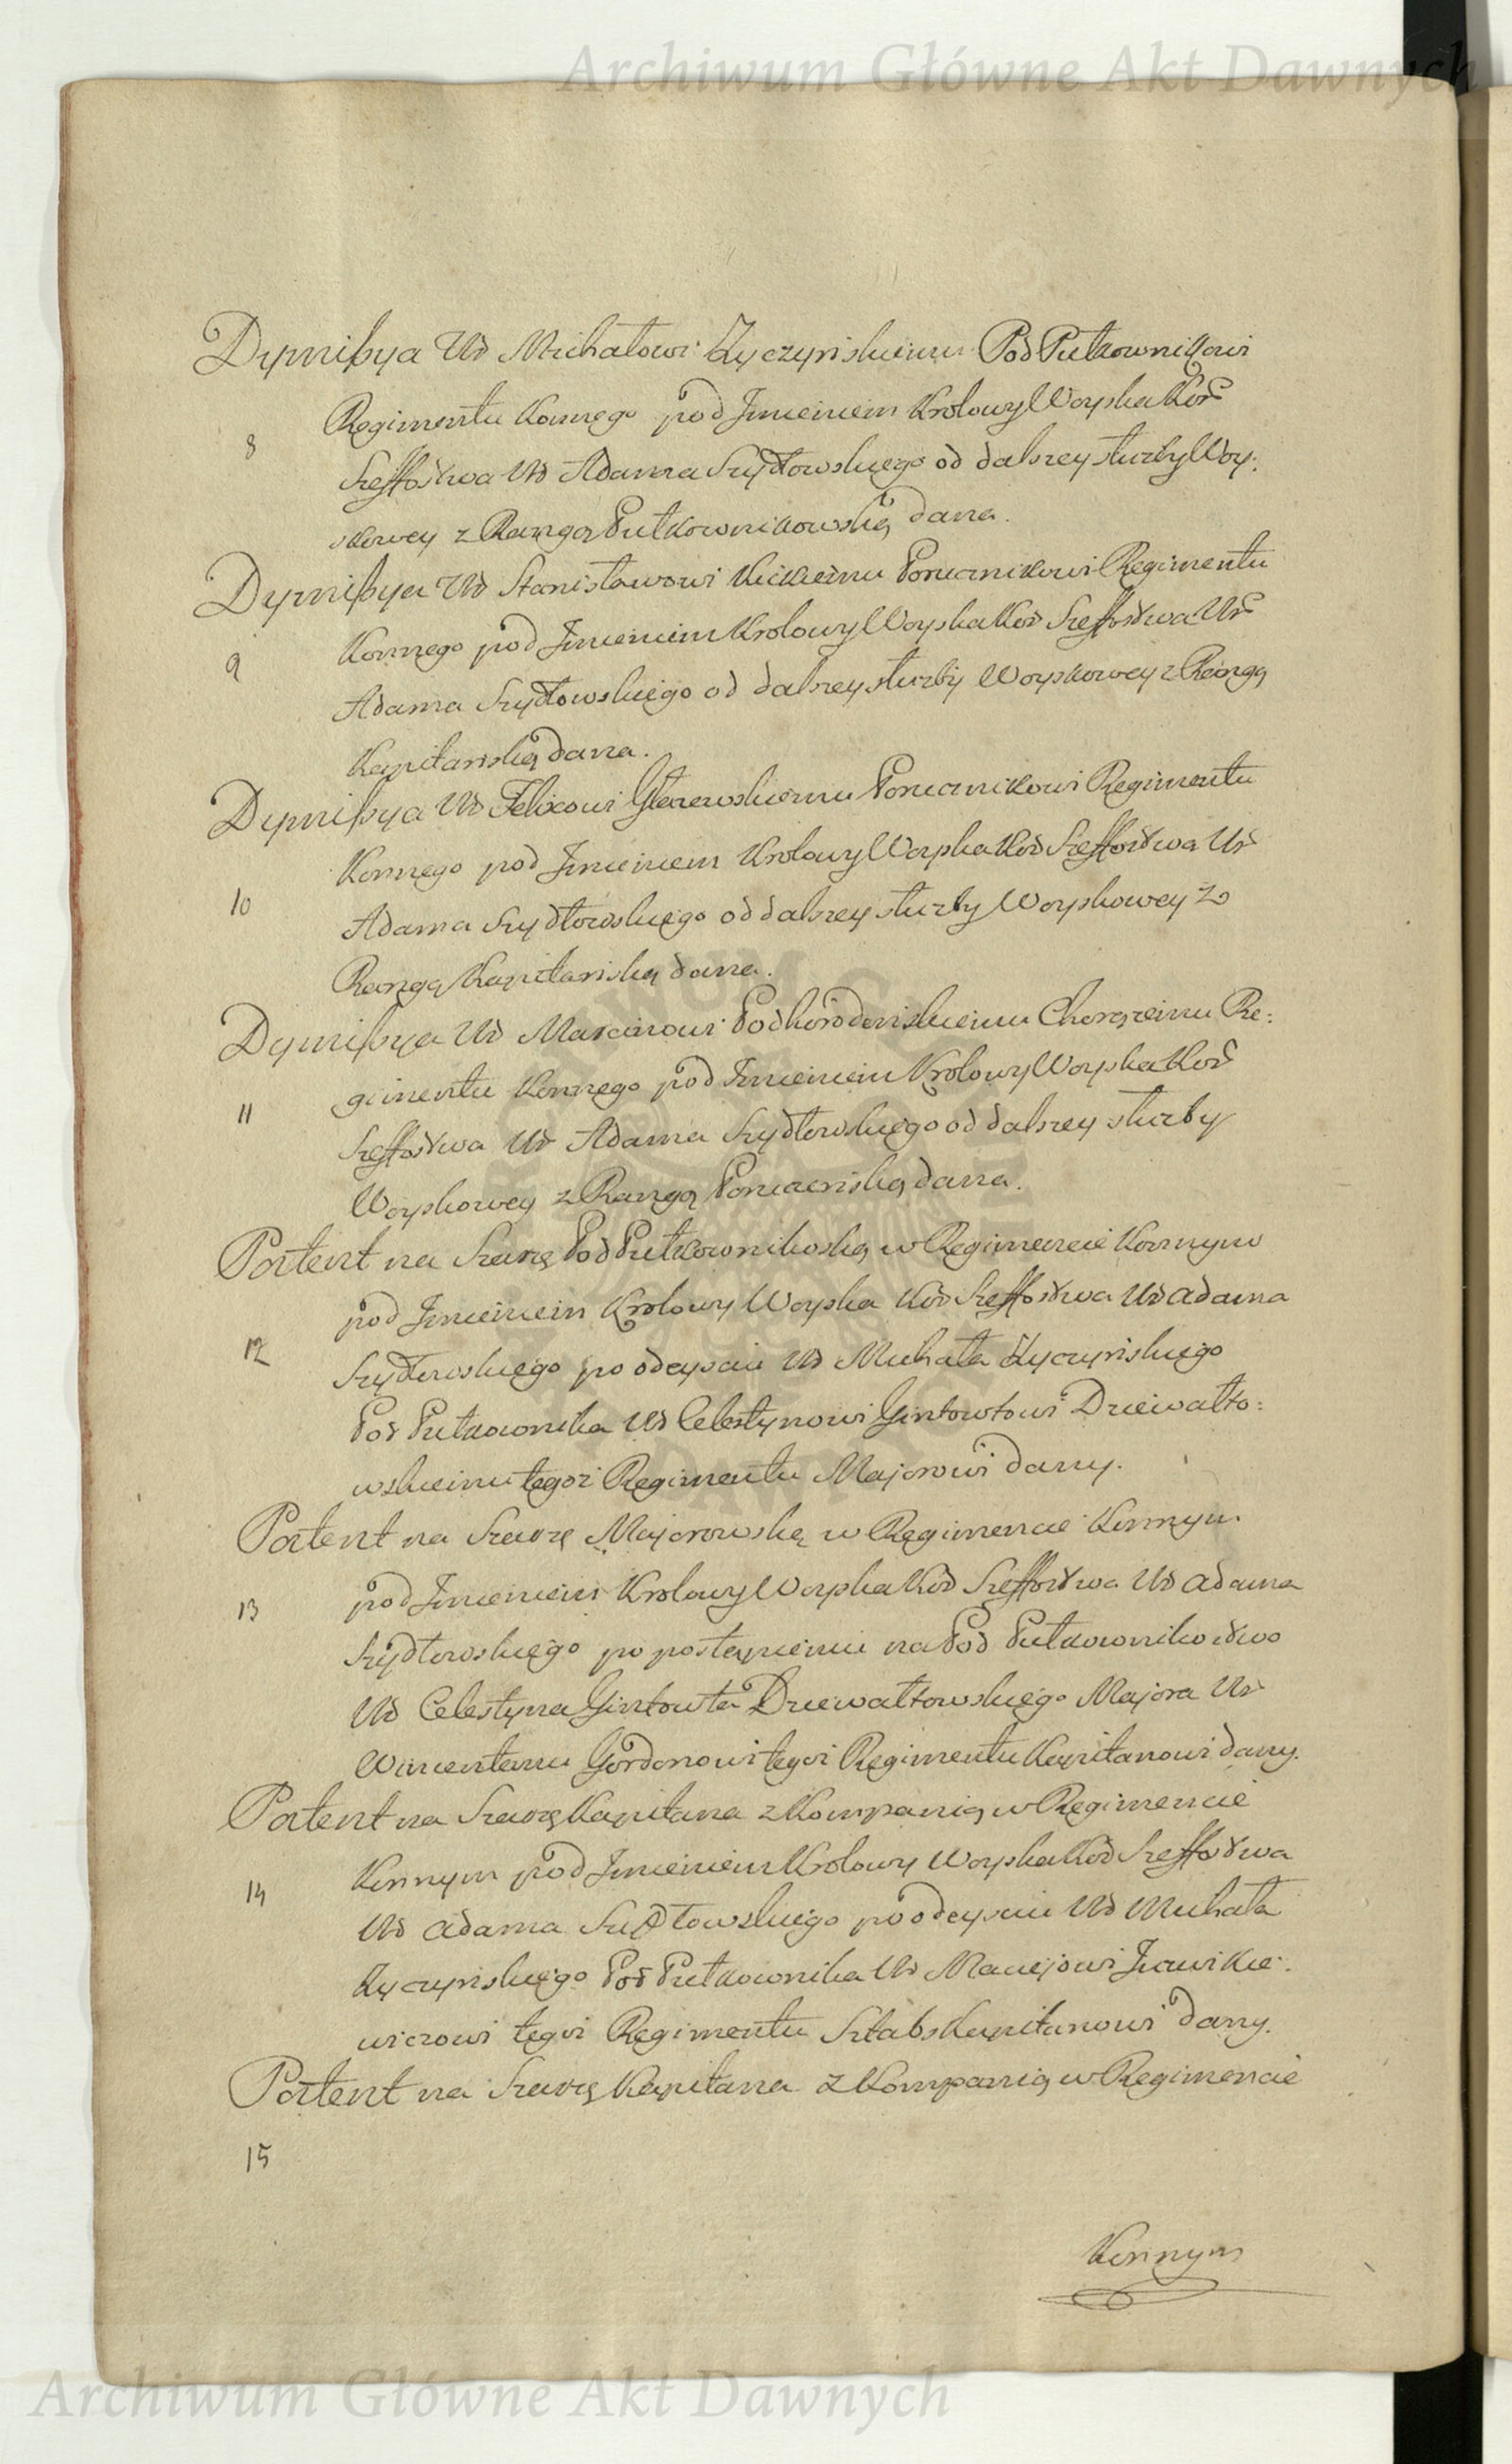 Archiwum Główne Akt Dawnych
Dymissya Ur Michałowi Zyczyńskiemu Pod Pułkownikowi
8
Regimentu Konnego pod Jmieniem Krolowy Woyska Kor
Szeffostwa Ur Adama Szydłowskiego od dalszey służby Woy:
skowey z Rangą Pułkownikowską dana.
Dymissya Ur Stanisławowi Kickiemu Porucznikowi Regimentu
9
Konnego pod Jmieniem Krolowy Woyska Kor Szeffostwa Ur
Adama Szydłowskiego od dalszey służby Woyskowey z Rangą
Kapitańską dana.
Dymissya Ur Felixowi Porucznikowi Regimentu
10
Konnego pod Jmieniem Krolowy Woyska Kor Szeffostwa Ur
Adama Szydłowskiego od dalszey służby Woyskowey z
Rangą Kapitańską dana.
Dymissya Ur Marcinowi Podhorodeńskiemu Chorążemu Re:
11
gimentu Konnego pod Jmieniem Krolowy Woyska Kor
Szeffostwa Ur Adama Szydłowskiego od dalszey służby
Woyskowey z Rangą Poruczńską dana.
Patent na Szarżę Pod Pułkownikoską w Regimencie Konnym
12
pod Jmieniem Krolowy Woyska Kor Szeffostwa Ur Adama
Szydłowskiego po odeysciu Ur Michała Zyczyńskiego
Pod Pułkownika Ur Celestynowi Gintowtowi Dziewałto:
wskiemu tegoż Regimentu Majorowi dany.
Patent na Szarżę Majorowską w Regimencie Konnym
13
pod Jmieniem Krolowy Woyska Kor Szeffostwa Ur Adama
Szydłowskiego po postąpieniu na Pod Pułkownikostwo
Ur Celestyna Gintowta Dziewałtowskiego Majora Ur
Wincentemu Gordonowi tegoż Regimentu Kapitanowi dany.
Patent na Szarżę Kapitana z Kompanią w Regimencie
14
Konnym pod Jmieniem Krolowy Woyska Kor Szeffostwa
Ur Adama Szydłowskiego po odeysciu Ur Michała
Zyczyńskiego Pod Pułkownika Ur Maciejowi
wiczowi tegoż Regimentu Sztabs Kapitanowi dany.
Patent na Szarżę Kapitana z Kompanią w Regimencie
15
Konnym
Archiwum Główne Akt Dawnych